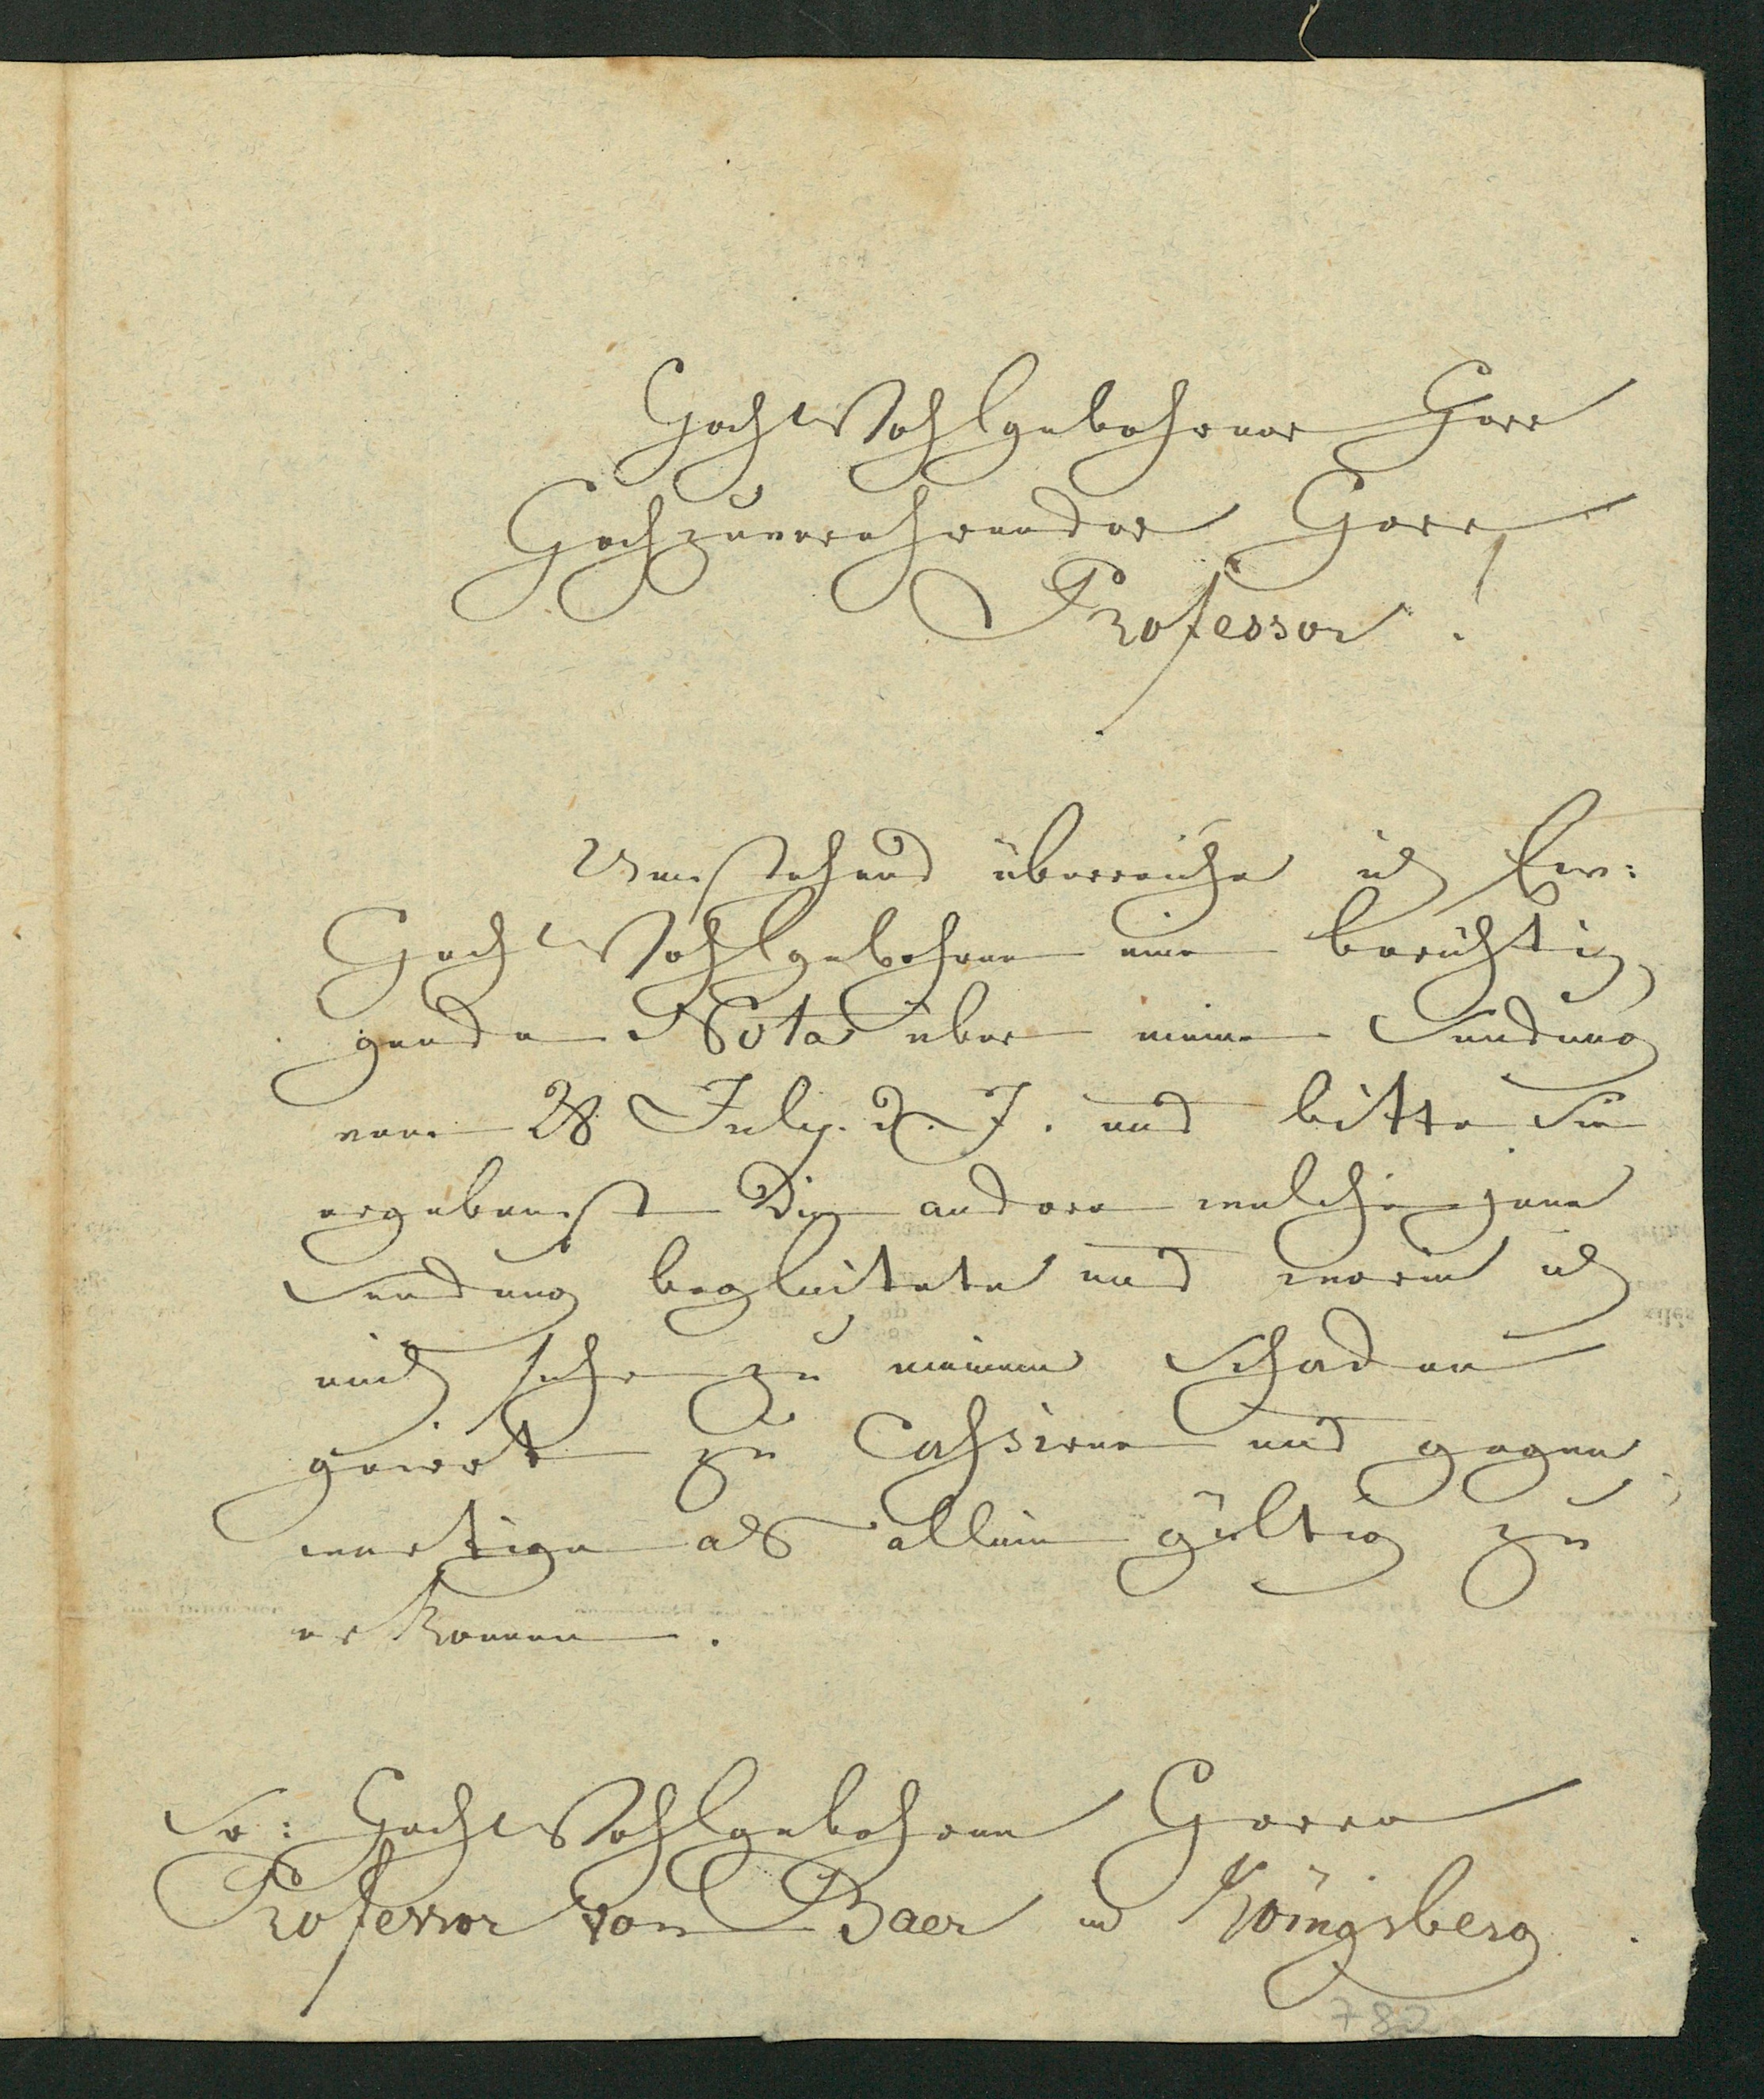 HochWohlgebohrner Herr
Hochzuverehrender Herr
Professor!
Umstehend überreiche ich Ew:
HochWohlgebohren eine berichti-
gende Nota über meine Sendung
vom 28 July. d. J. und bitte Sie
ergebenst die andere welche jene
Sendung begleitete und worin ich
mich sehr zu meinem Schaden
geirrt zu Cassiren und gegen-
wertige als allein gültig zu
erkennen.
Sr: HochWohlgebohren Herrn
Professor von Baer in Königsberg.
782